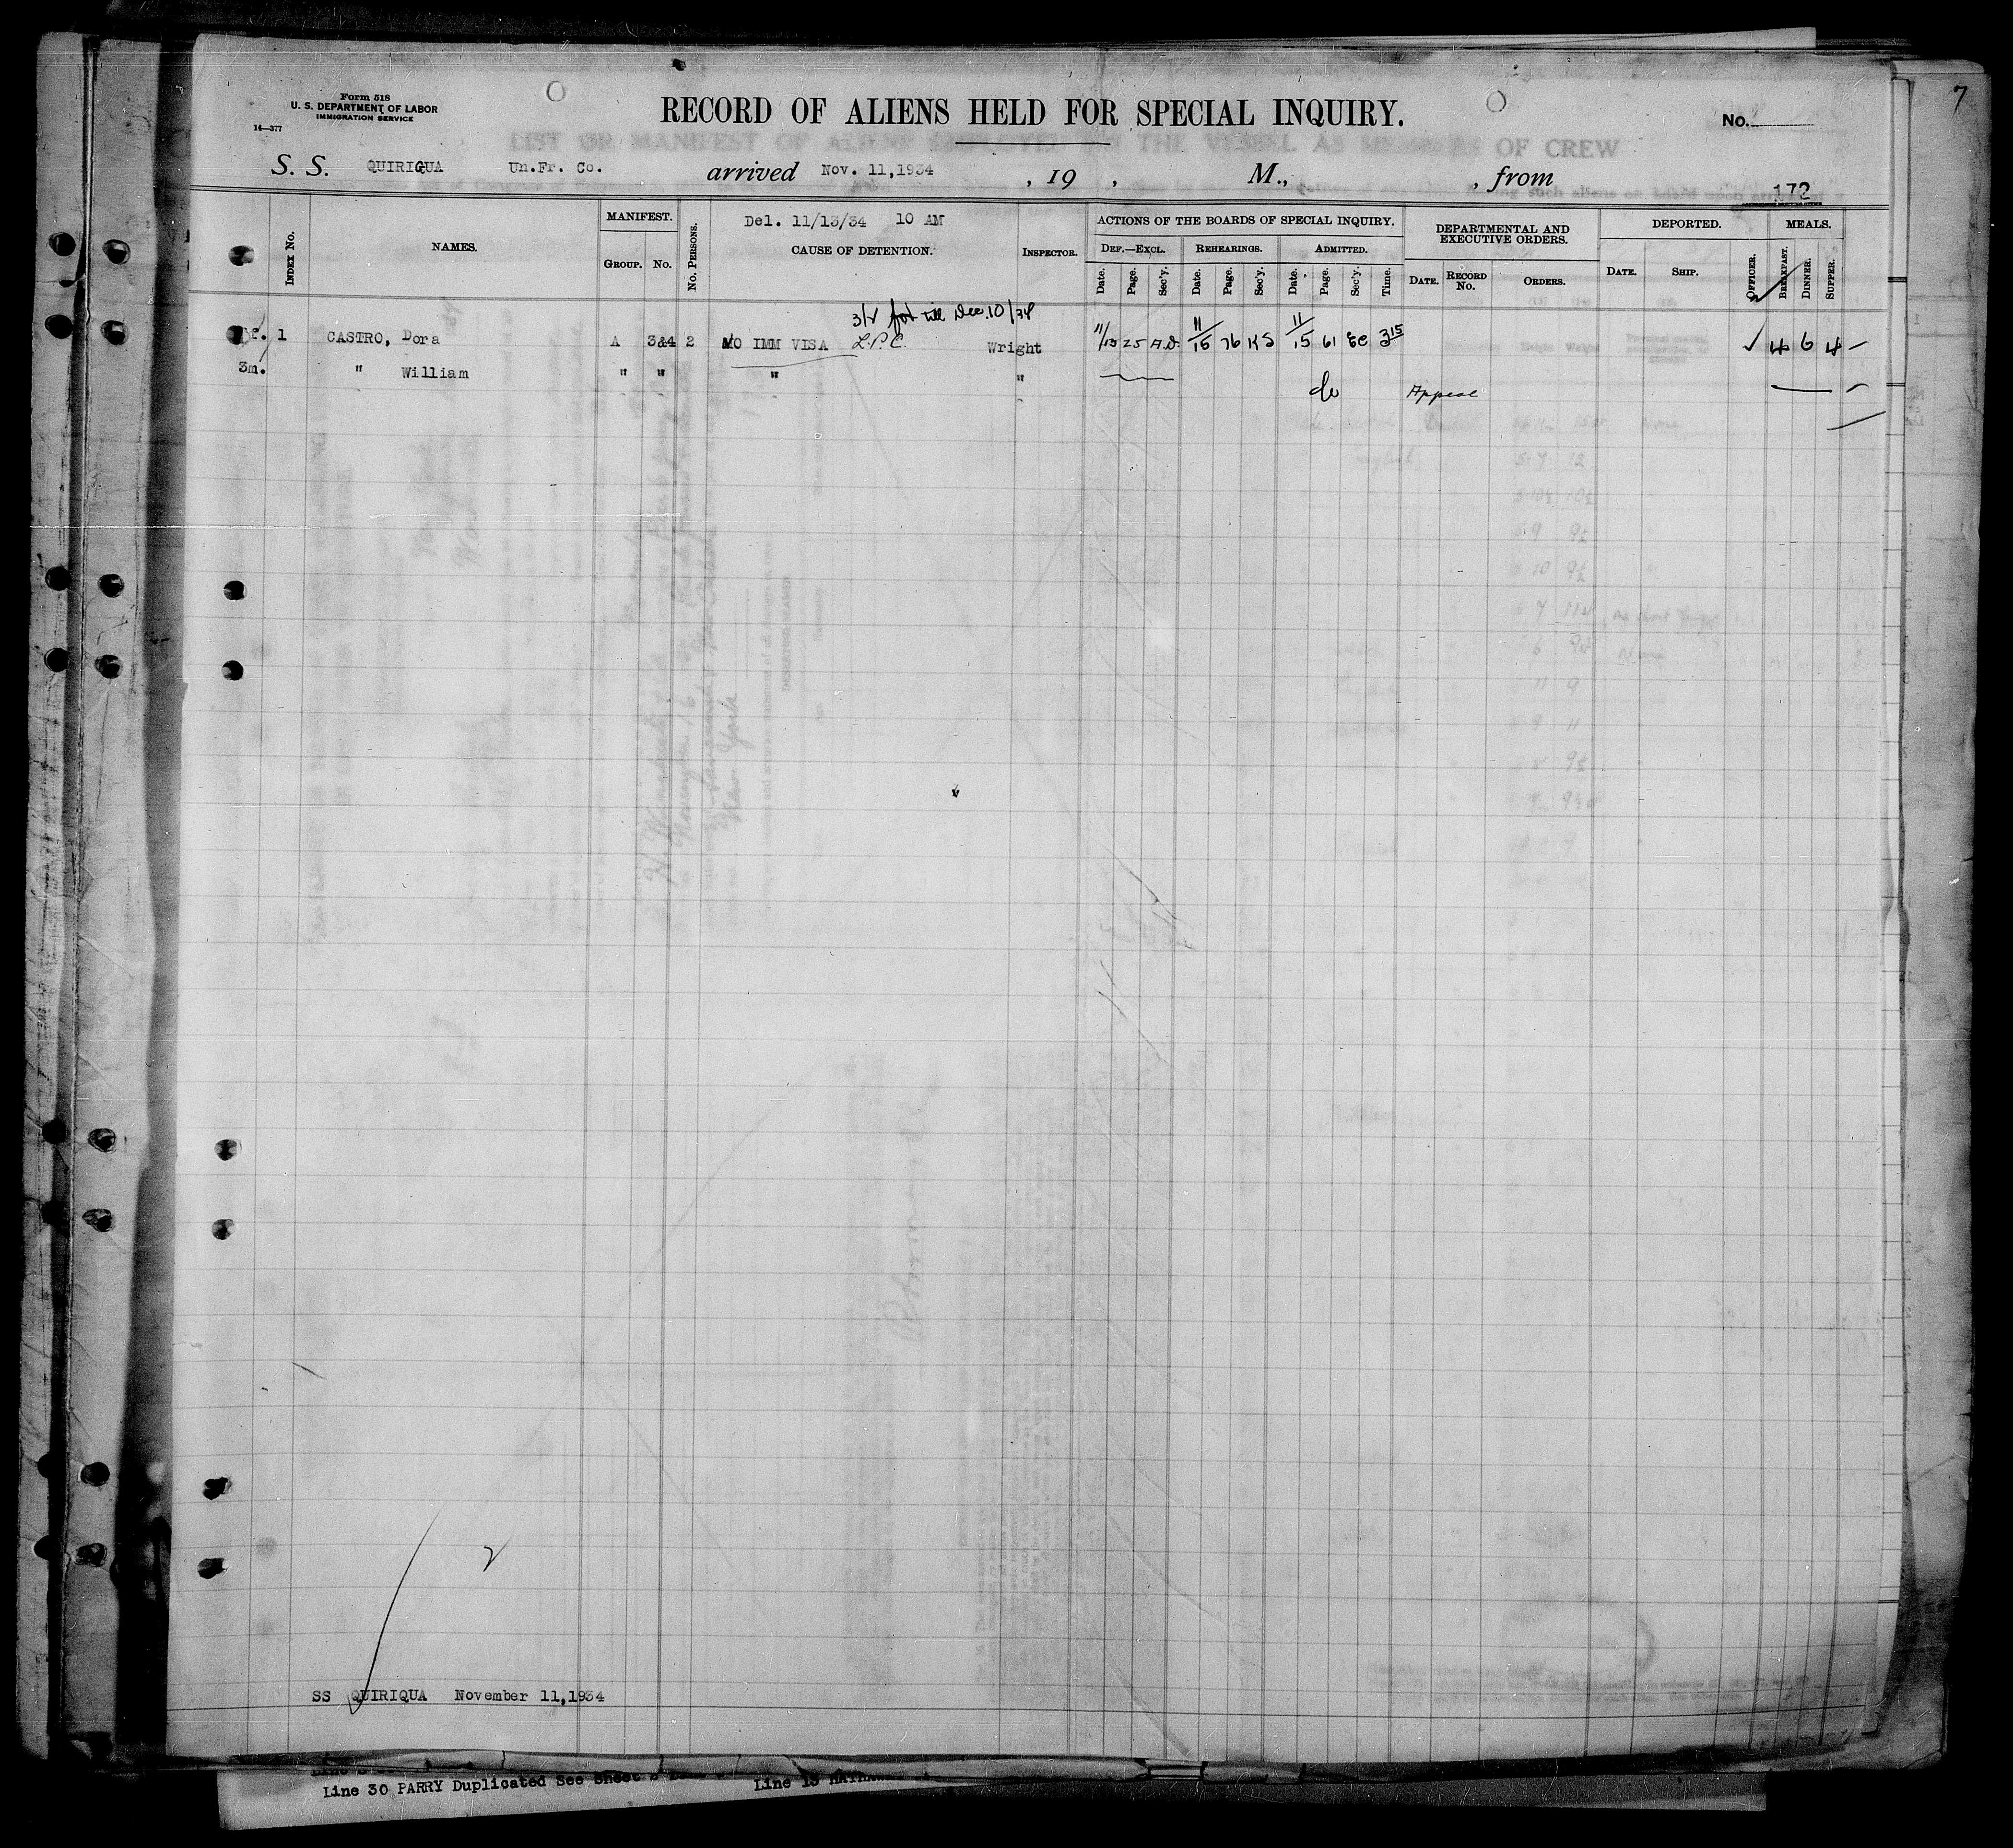 7
Form 518
U. S. DEPARTMENT OF LABOR
IMMIGRATION SERVICE
14—377
RECORD OF ALIENS HELD FOR SPECIAL INQUIRY.
No.
LIST OR MANIFEST OF ALIENS EMPLOYED ON THE VESSEL AS MEMBERS OF CREW
S. S. QUIRIGUA Un.Fr. Co. arrived Nov. 11,1934 , 19 , M., , from
172
INDEX No. NAMES. MANIFEST. GROUP. No. No. PERSONS. Del. 11/13/34 10 AM CAUSE OF DETENTION. INSPECTOR. ACTIONS OF THE BOARDS OF SPECIAL INQUIRY. DEPARTMENTAL AND EXECUTIVE ORDERS. DEPORTED. MEALS.
DEF.—EXCL. REHEARINGS. ADMITTED.
Date. Page. Sec'y. Date. Page. Sec'y. Date. Page. Sec'y. Time. DATE. RECORD No. ORDERS. DATE. SHIP. OFFICER. BREAKFAST. DINNER. SUPPER.
till Dec. 10/34
f. 1 CASTRO, Dora A 3&4 2 NO IMM VISA L.P.C. Wright 11/13 25 A.D. 11/15 76 KS 11/15 61 3 15 4 6 4
3m. " William " " " "
Appeal
SS QUIRIQUA November 11,1934
Line 30 PARRY Duplicated See Sheet
Line 13